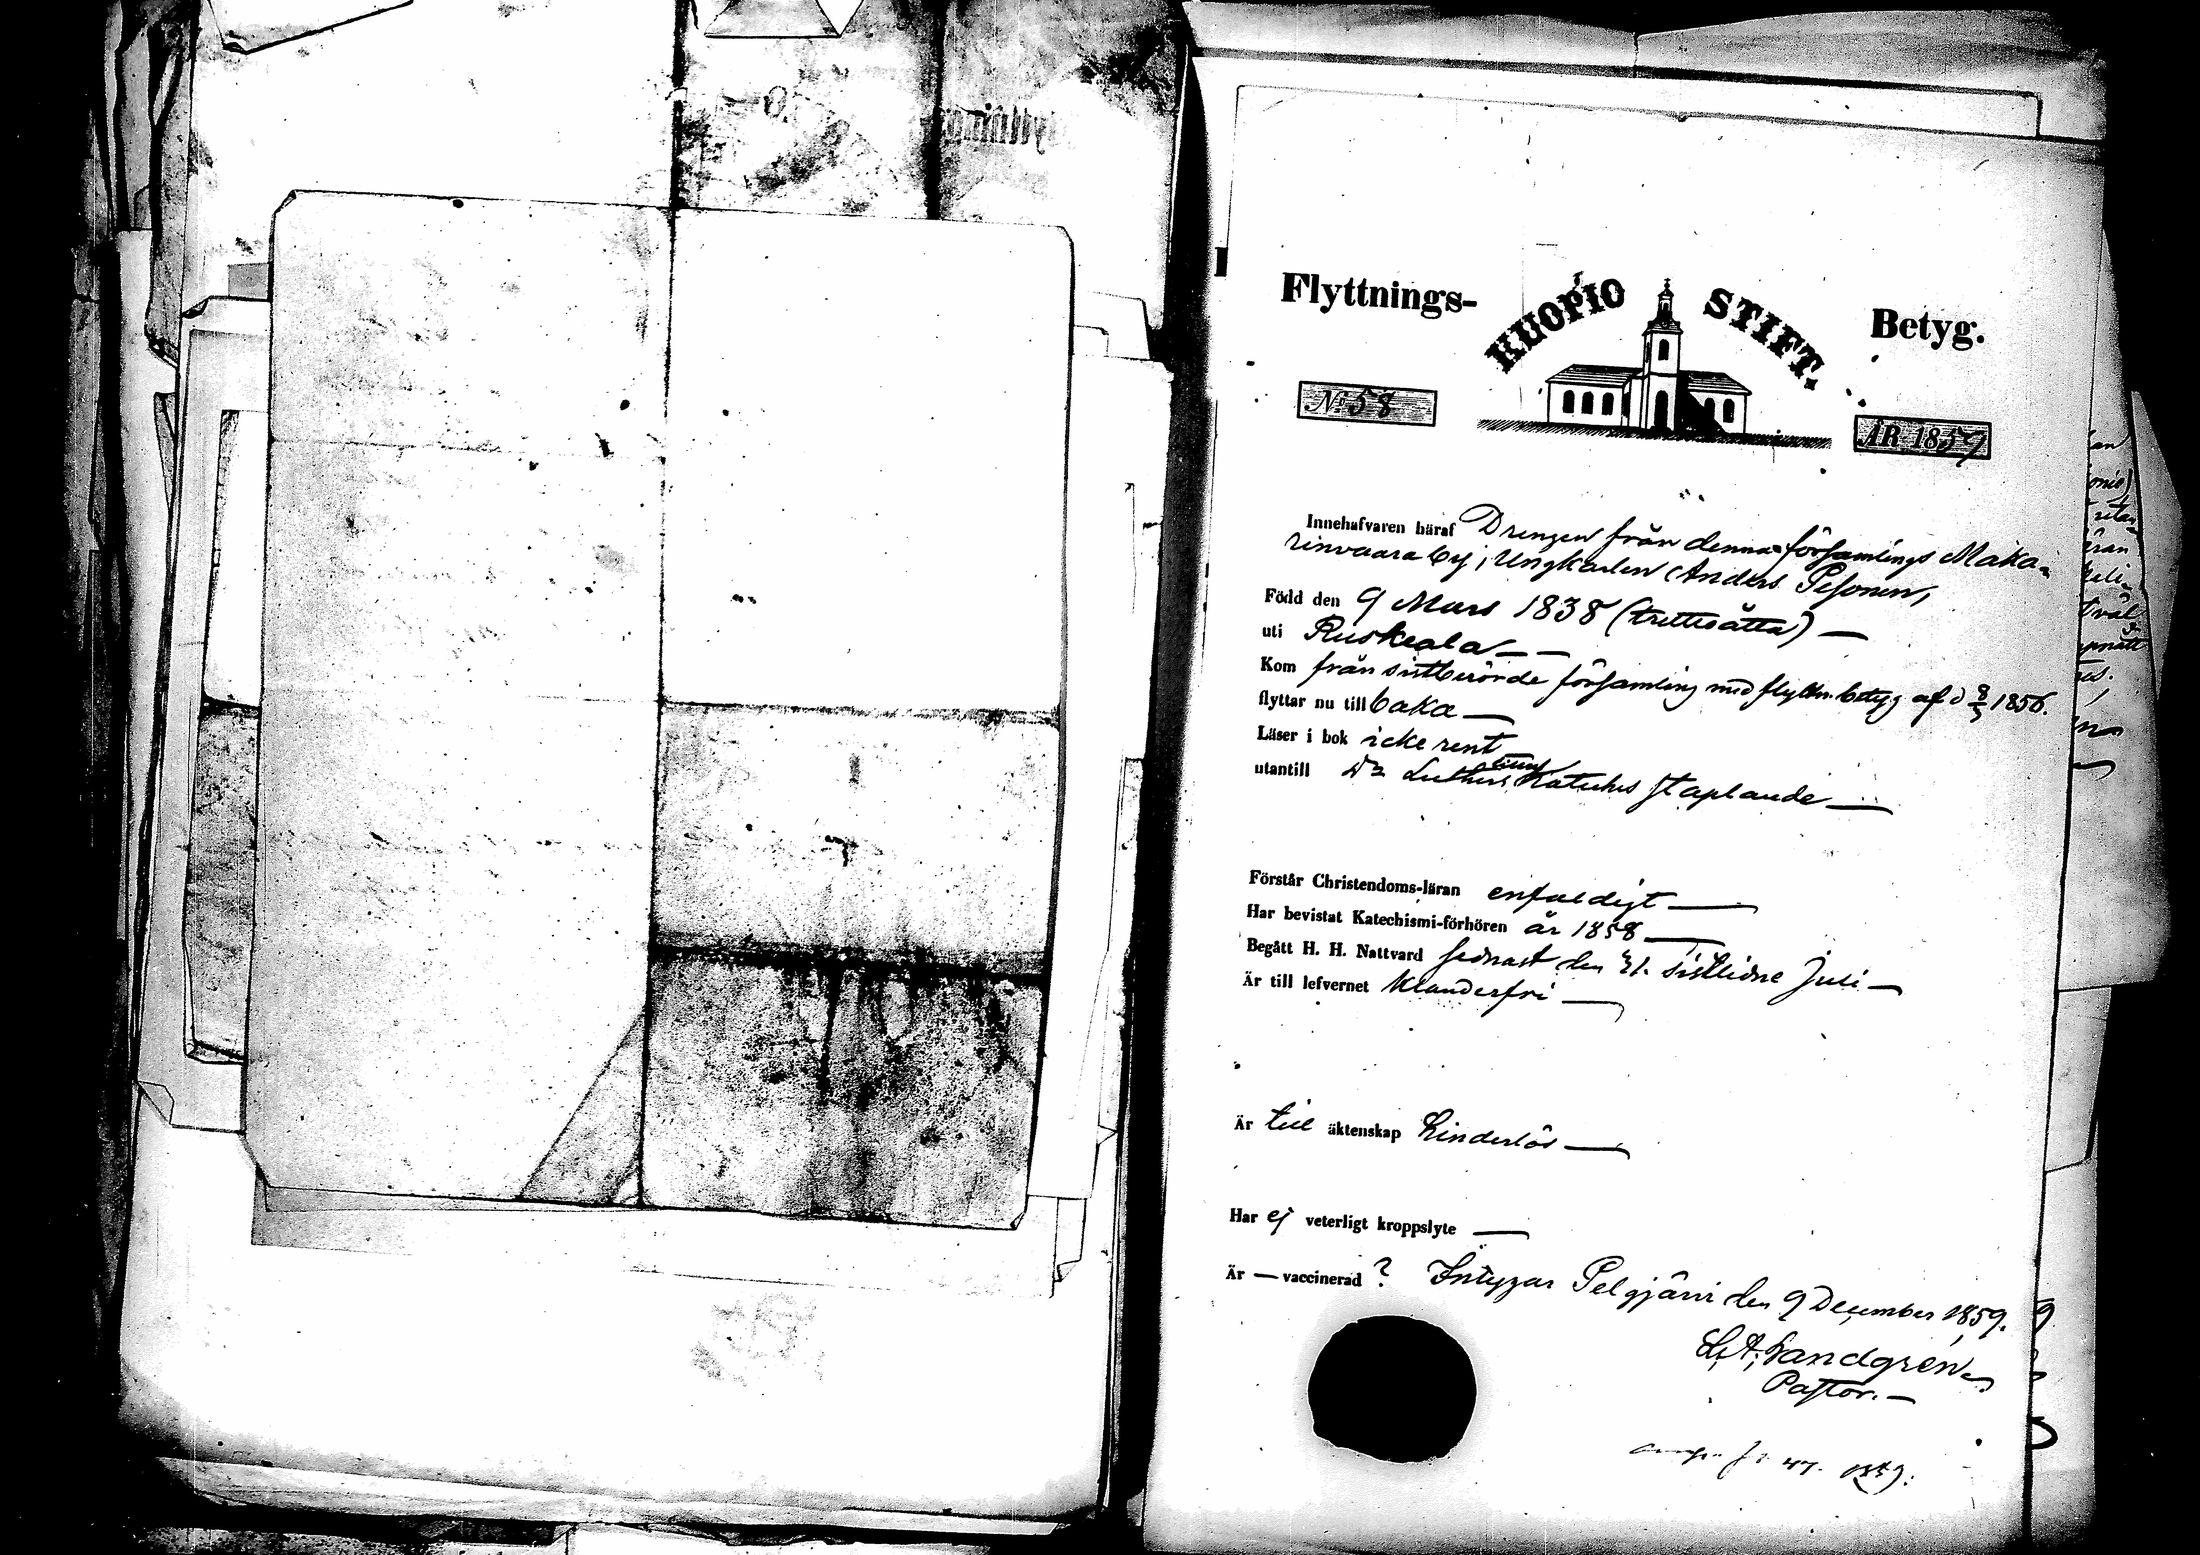 Flyttnings- KUOPIO STIFT. Betyg.
No 58
ÅR 1859
Innehafvaren häraf Drengen från denna församlings Maka-
rinvaara by, Ungkarlen Anders Pesonen,
Född den 9 Mars 1838 (trettioåtta) —
uti Ruskeala — —
Kom från sistberörde församling med flyttn. betyg af d 8/3 1856.
flyttar nu till baka —
Läser i bok icke rent
utantill Dr Luthers Katekes staplande —
Förstår Christendoms-läran enfaldigt —
Har bevistat Katechismi-förhören år 1858 —
Begått H. H. Nattvard sednast den 31. sistlidne Juli —
Är till lefvernet klanderfri —
Är till äktenskap hinderlös —
Har ej veterligt kroppslyte —
Är — vaccinerad ? Intygar Pelgjärvi den 9 December 1859.
L. A. Sandgren
Pastor. —
47. 1859.